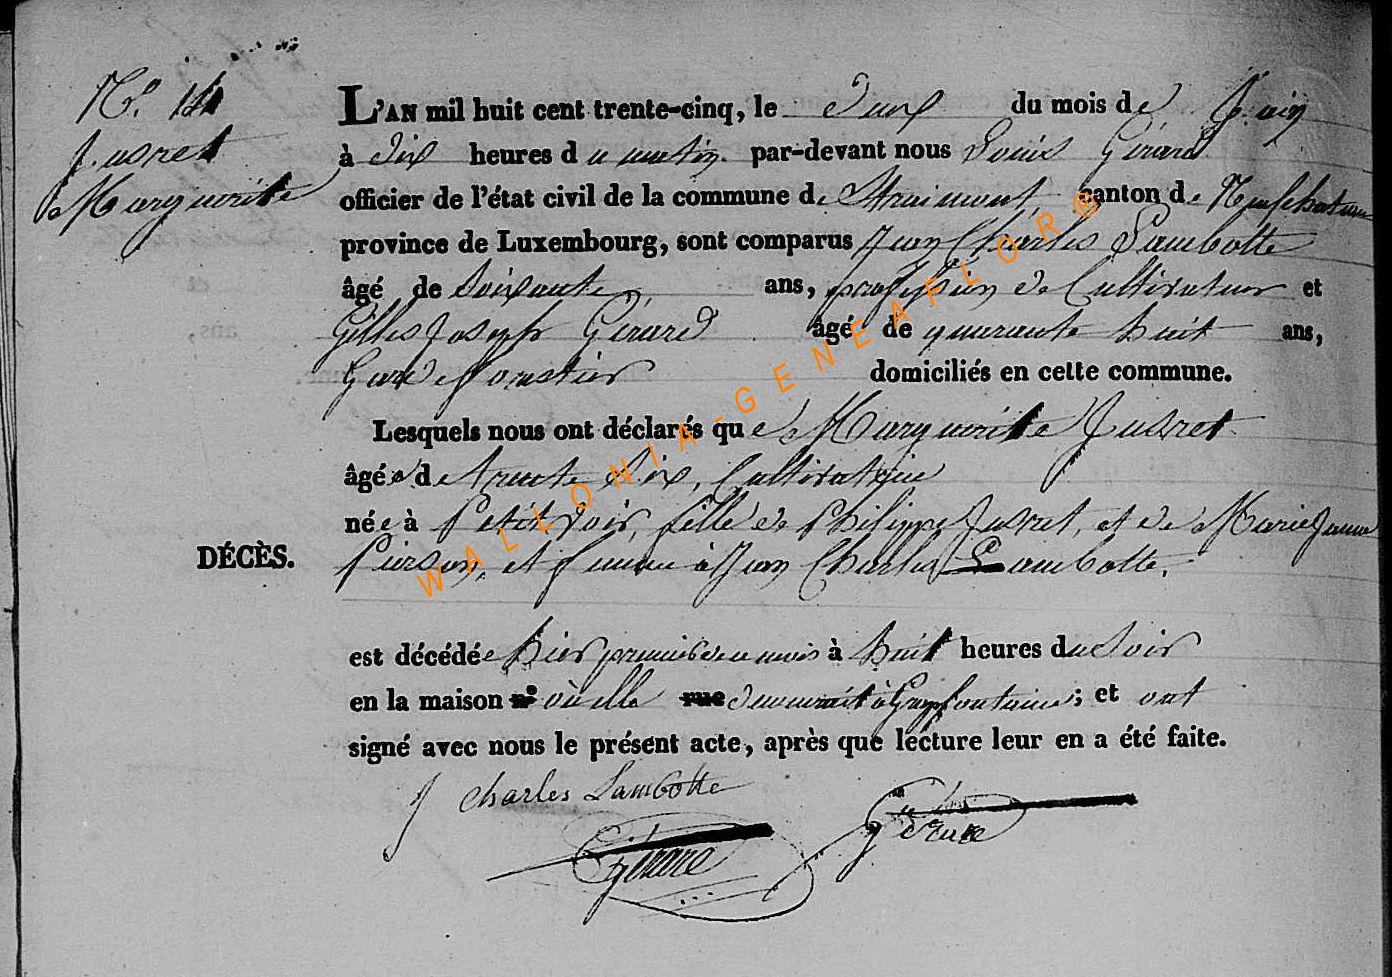 N.° 14
Jusret
Marguerite
L'AN mil huit cent trente-cinq, le deux du mois de Juin
à dix heures du matin par-devant nous Louis Gérard
officier de l'état civil de la commune de Straimont, canton de Neufchateau
province de Luxembourg, sont comparus Jean Charles Lambotte
âgé de Soixante ans, profession de Cultivateur et
Gilles Joseph Gérard âgé de quarante huit ans,
Garde forestier domiciliés en cette commune.
Lesquels nous ont déclarés que Marguerite Jusret
âgée de trente six, Cultivatrice
née à Petitvoir, fille de Philippe Jusret, et de Marie Jeanne
DÉCÈS.
Pierson, et femme à Jean Charles Lambotte.
est décédée hier premier du mois à huit heures du Soir
en la maison n° où elle rue demeurait à Grapfontaine; et ont
signé avec nous le présent acte, après que lecture leur en a été faite.
J Charles Lambotte
Gérard
Gérard
WALLONIA-GENEAFLOR®